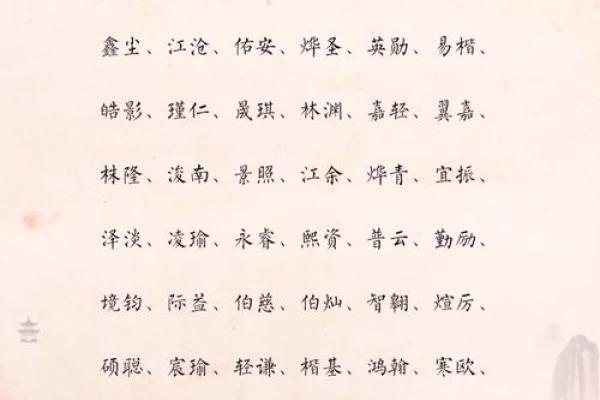 鑫尘、江沧、佑安、烨圣、英勋、易楷、
皓影、瑾仁、晟琪、林渊、嘉轻、翼嘉、
株隆、浚南、景照、江余、烨青、宜振、
泽淡、凌瑜、永睿、熙资、普云、勤励、
境钧、际益、伯慈、伯灿、智翱、煊厉、
硕聪、宸瑜、轻谦、楷基、鸿翰、寒欧、